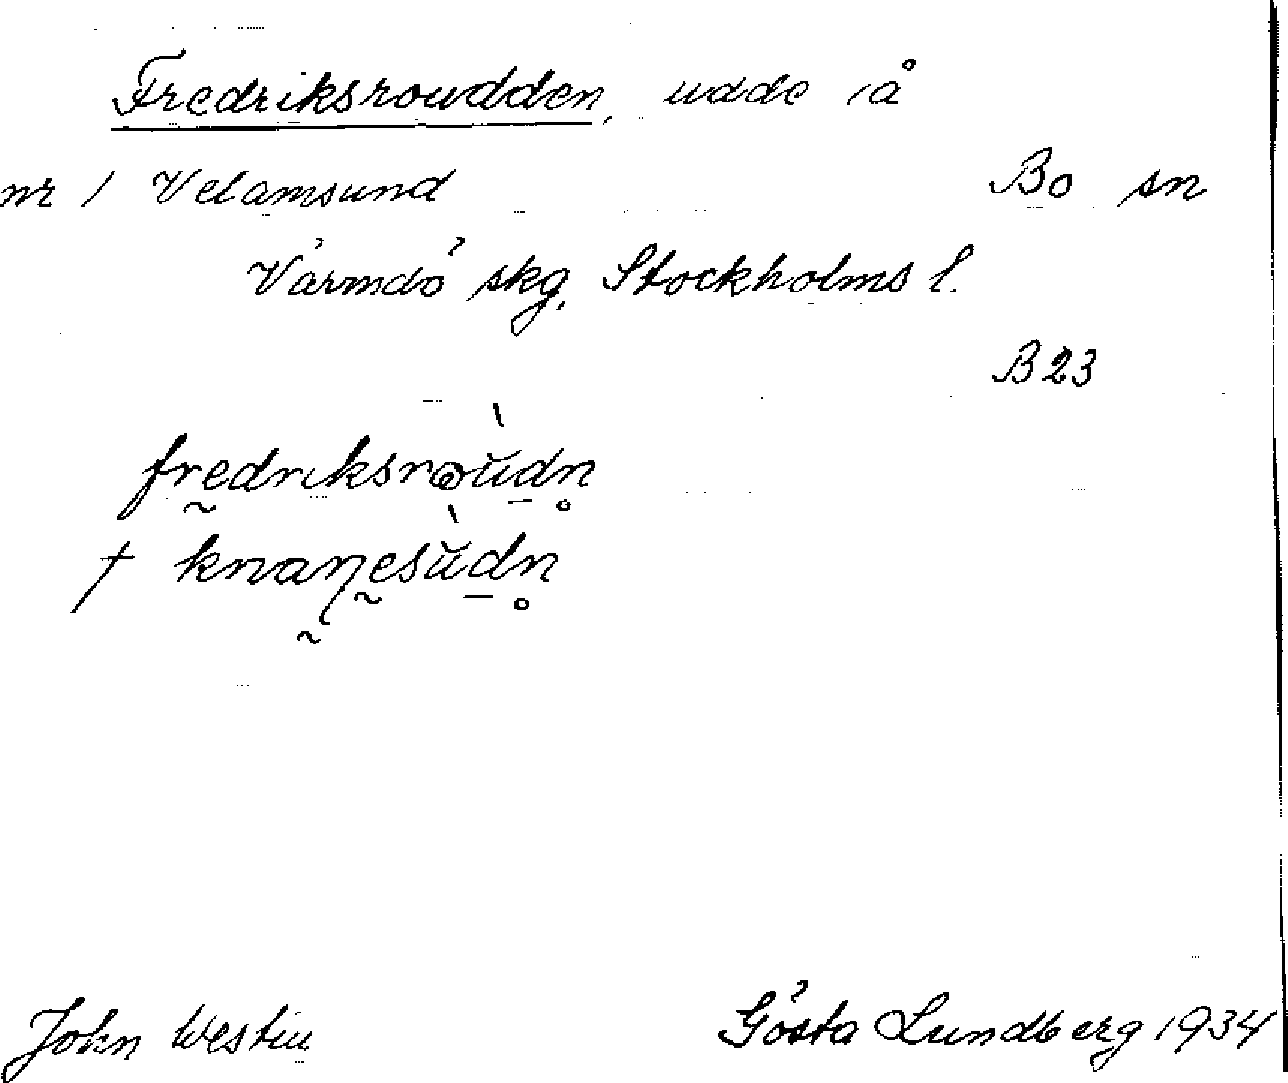 Fredriksroudden, udde i å
nr 1 Velamsund Bo sn
Värmdö skg, Stockholms l.
B 23
fredriksroùdn
† knaŋesùdn
John Westin Gösta Lundberg 1934